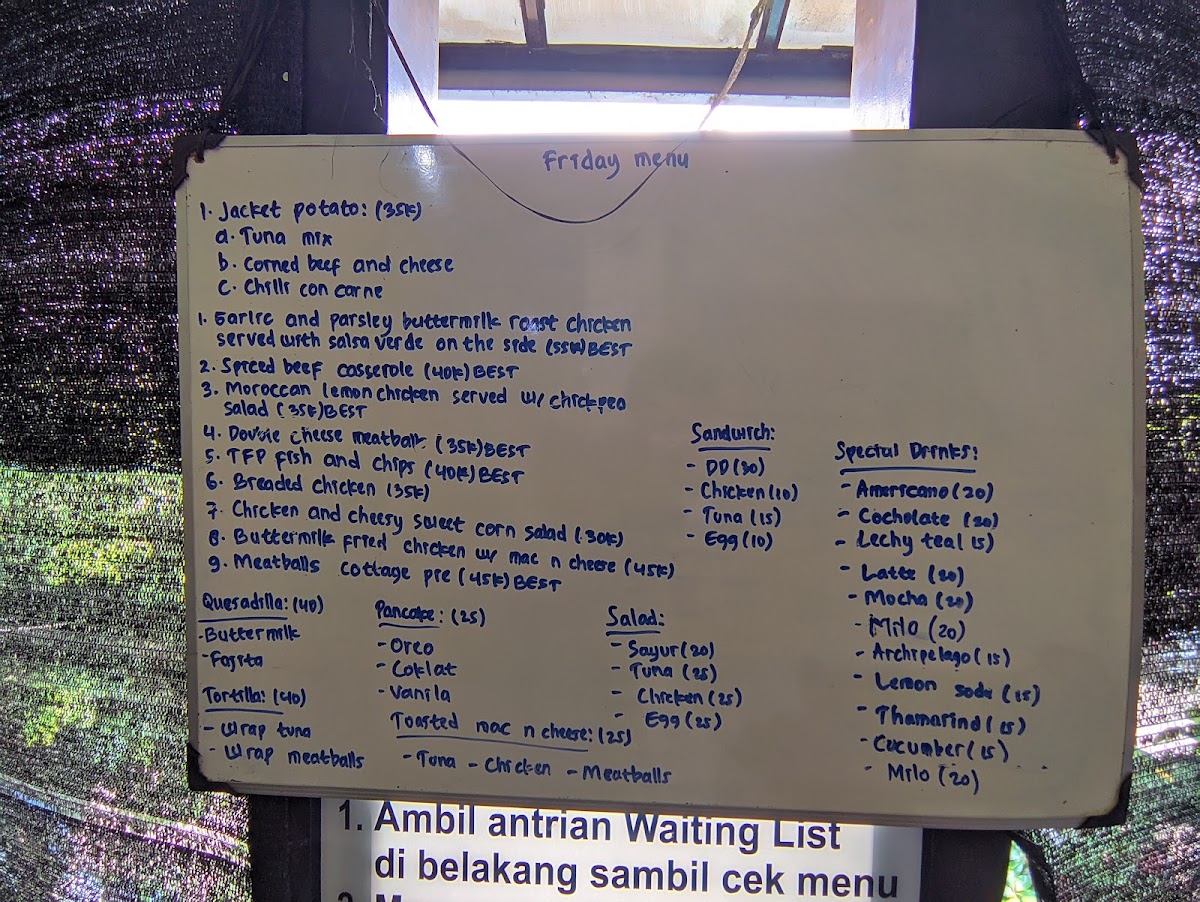 Friday menu
1. Jacket potato: (35K)
a. Tuna mix
b. Corned beef and cheese
c. Chilli con carne
1. Garlic and parsley buttermilk roast chicken
served with salsa verde on the side (55K) BEST
2. Spiced beef casserole (40K) BEST
3. Moroccan lemon chicken served w/ chickpea
salad (35K) BEST
4. Double cheese meatball (35K) BEST
5. TFP fish and chips (40K) BEST
6. Breaded chicken (35K)
7. Chicken and cheesy sweet corn salad (30K)
8. Buttermilk fried chicken w/ mac n cheese (45K)
9. Meatballs cottage pie (45K) BEST
Quesadilla: (40)
- Buttermilk
- Fajita
Tortilla: (40)
- Wrap tuna
- Wrap meatballs
Pancake: (25)
- Oreo
- Coklat
- Vanila
Toasted mac n cheese: (25)
- Tuna - Chicken - Meatballs
Sandwich:
- DD (30)
- Chicken (10)
- Tuna (15)
- Egg (10)
Salad:
- Sayur (20)
- Tuna (25)
- Chicken (25)
- Egg (25)
Special Drinks:
- Americano (20)
- Cocholate (20)
- Lechy tea (15)
- Latte (20)
- Mocha (20)
- Milo (20)
- Archipelago (15)
- Lemon soda (15)
- Thamarind (15)
- Cucumber (15)
- Milo (20)
1. Ambil antrian Waiting List
di belakang sambil cek menu